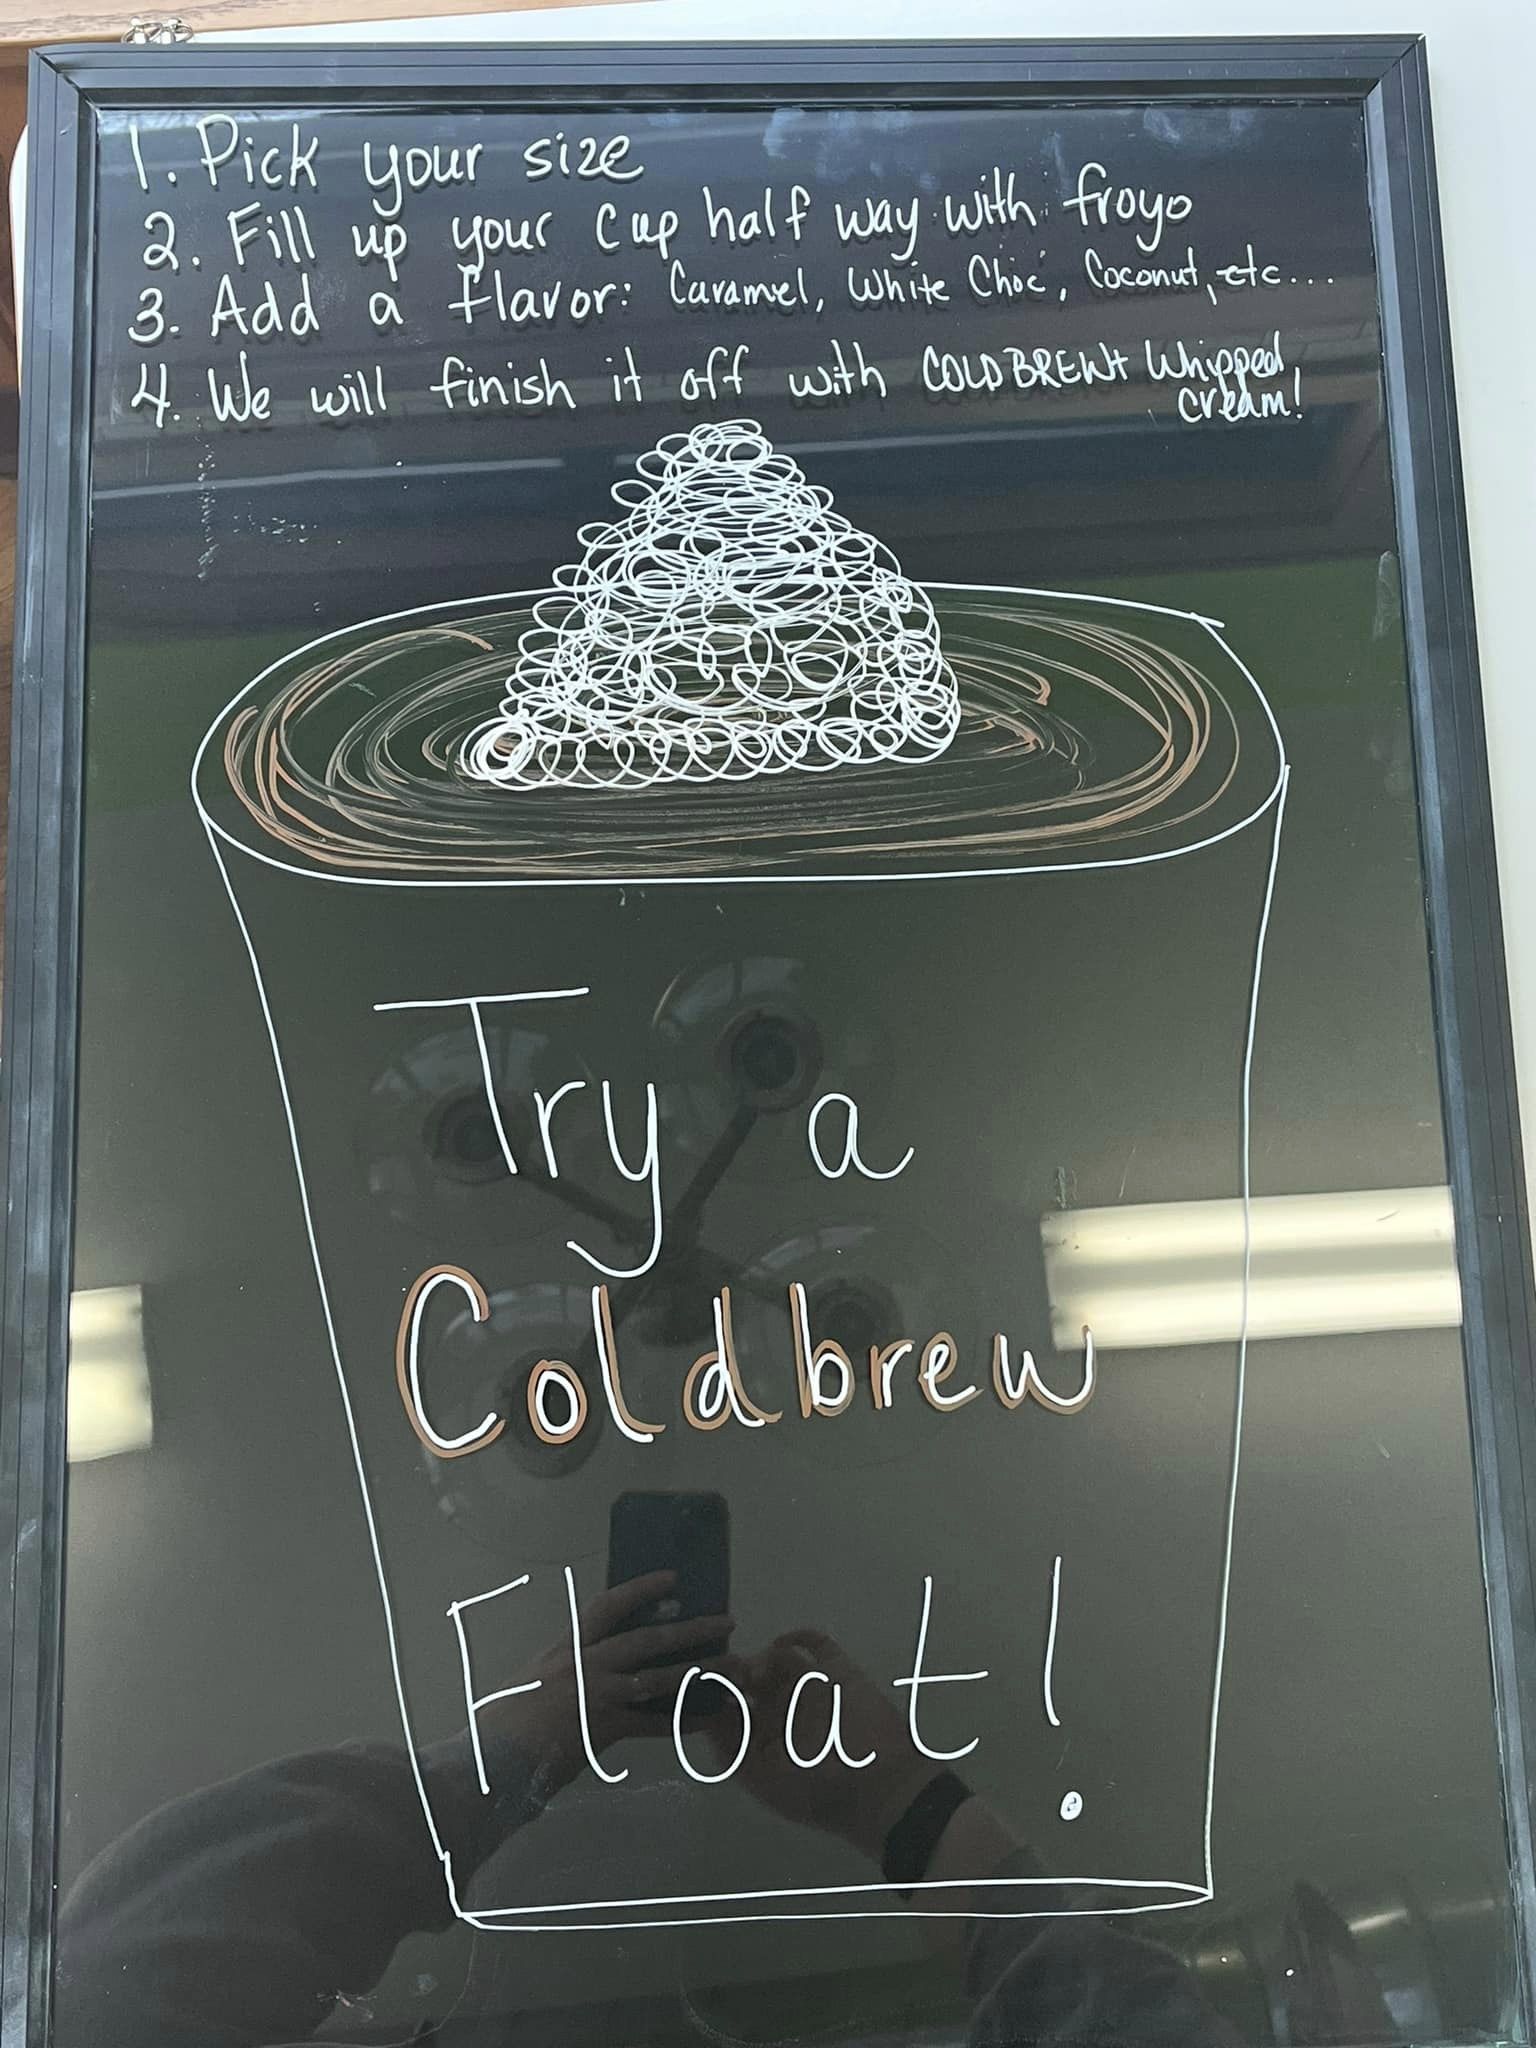 1. Pick your size
2. Fill up your cup half way with froyo
3. Add a flavor: Caramel, White Choc, Coconut, etc...
4. We will finish it off with COLDBREW+ Whipped
cream!
Try a
Coldbrew
Float!